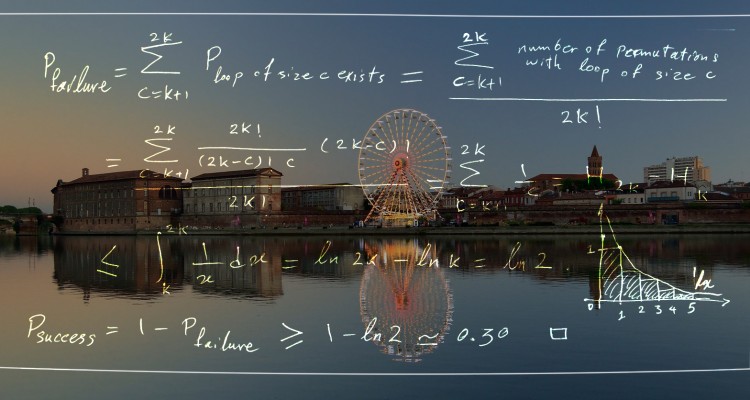 P_failure = Σ_{c=k+1}^{2k} P_loop of size c exists = Σ_{c=k+1}^{2k} number of permutations with loop of size c / 2k!
= Σ_{c=k+1}^{2k} 2k! / ((2k-c)! c) (2k-c)! / 2k! = Σ_{c=k+1}^{2k} 1/c = H_{2k} - H_k
≤ ∫_k^{2k} 1/x dx = ln 2k - ln k = ln 2.
1 1/x
0 1 2 3 4 5
P_success = 1 - P_failure ≥ 1 - ln 2 ≃ 0.30 □